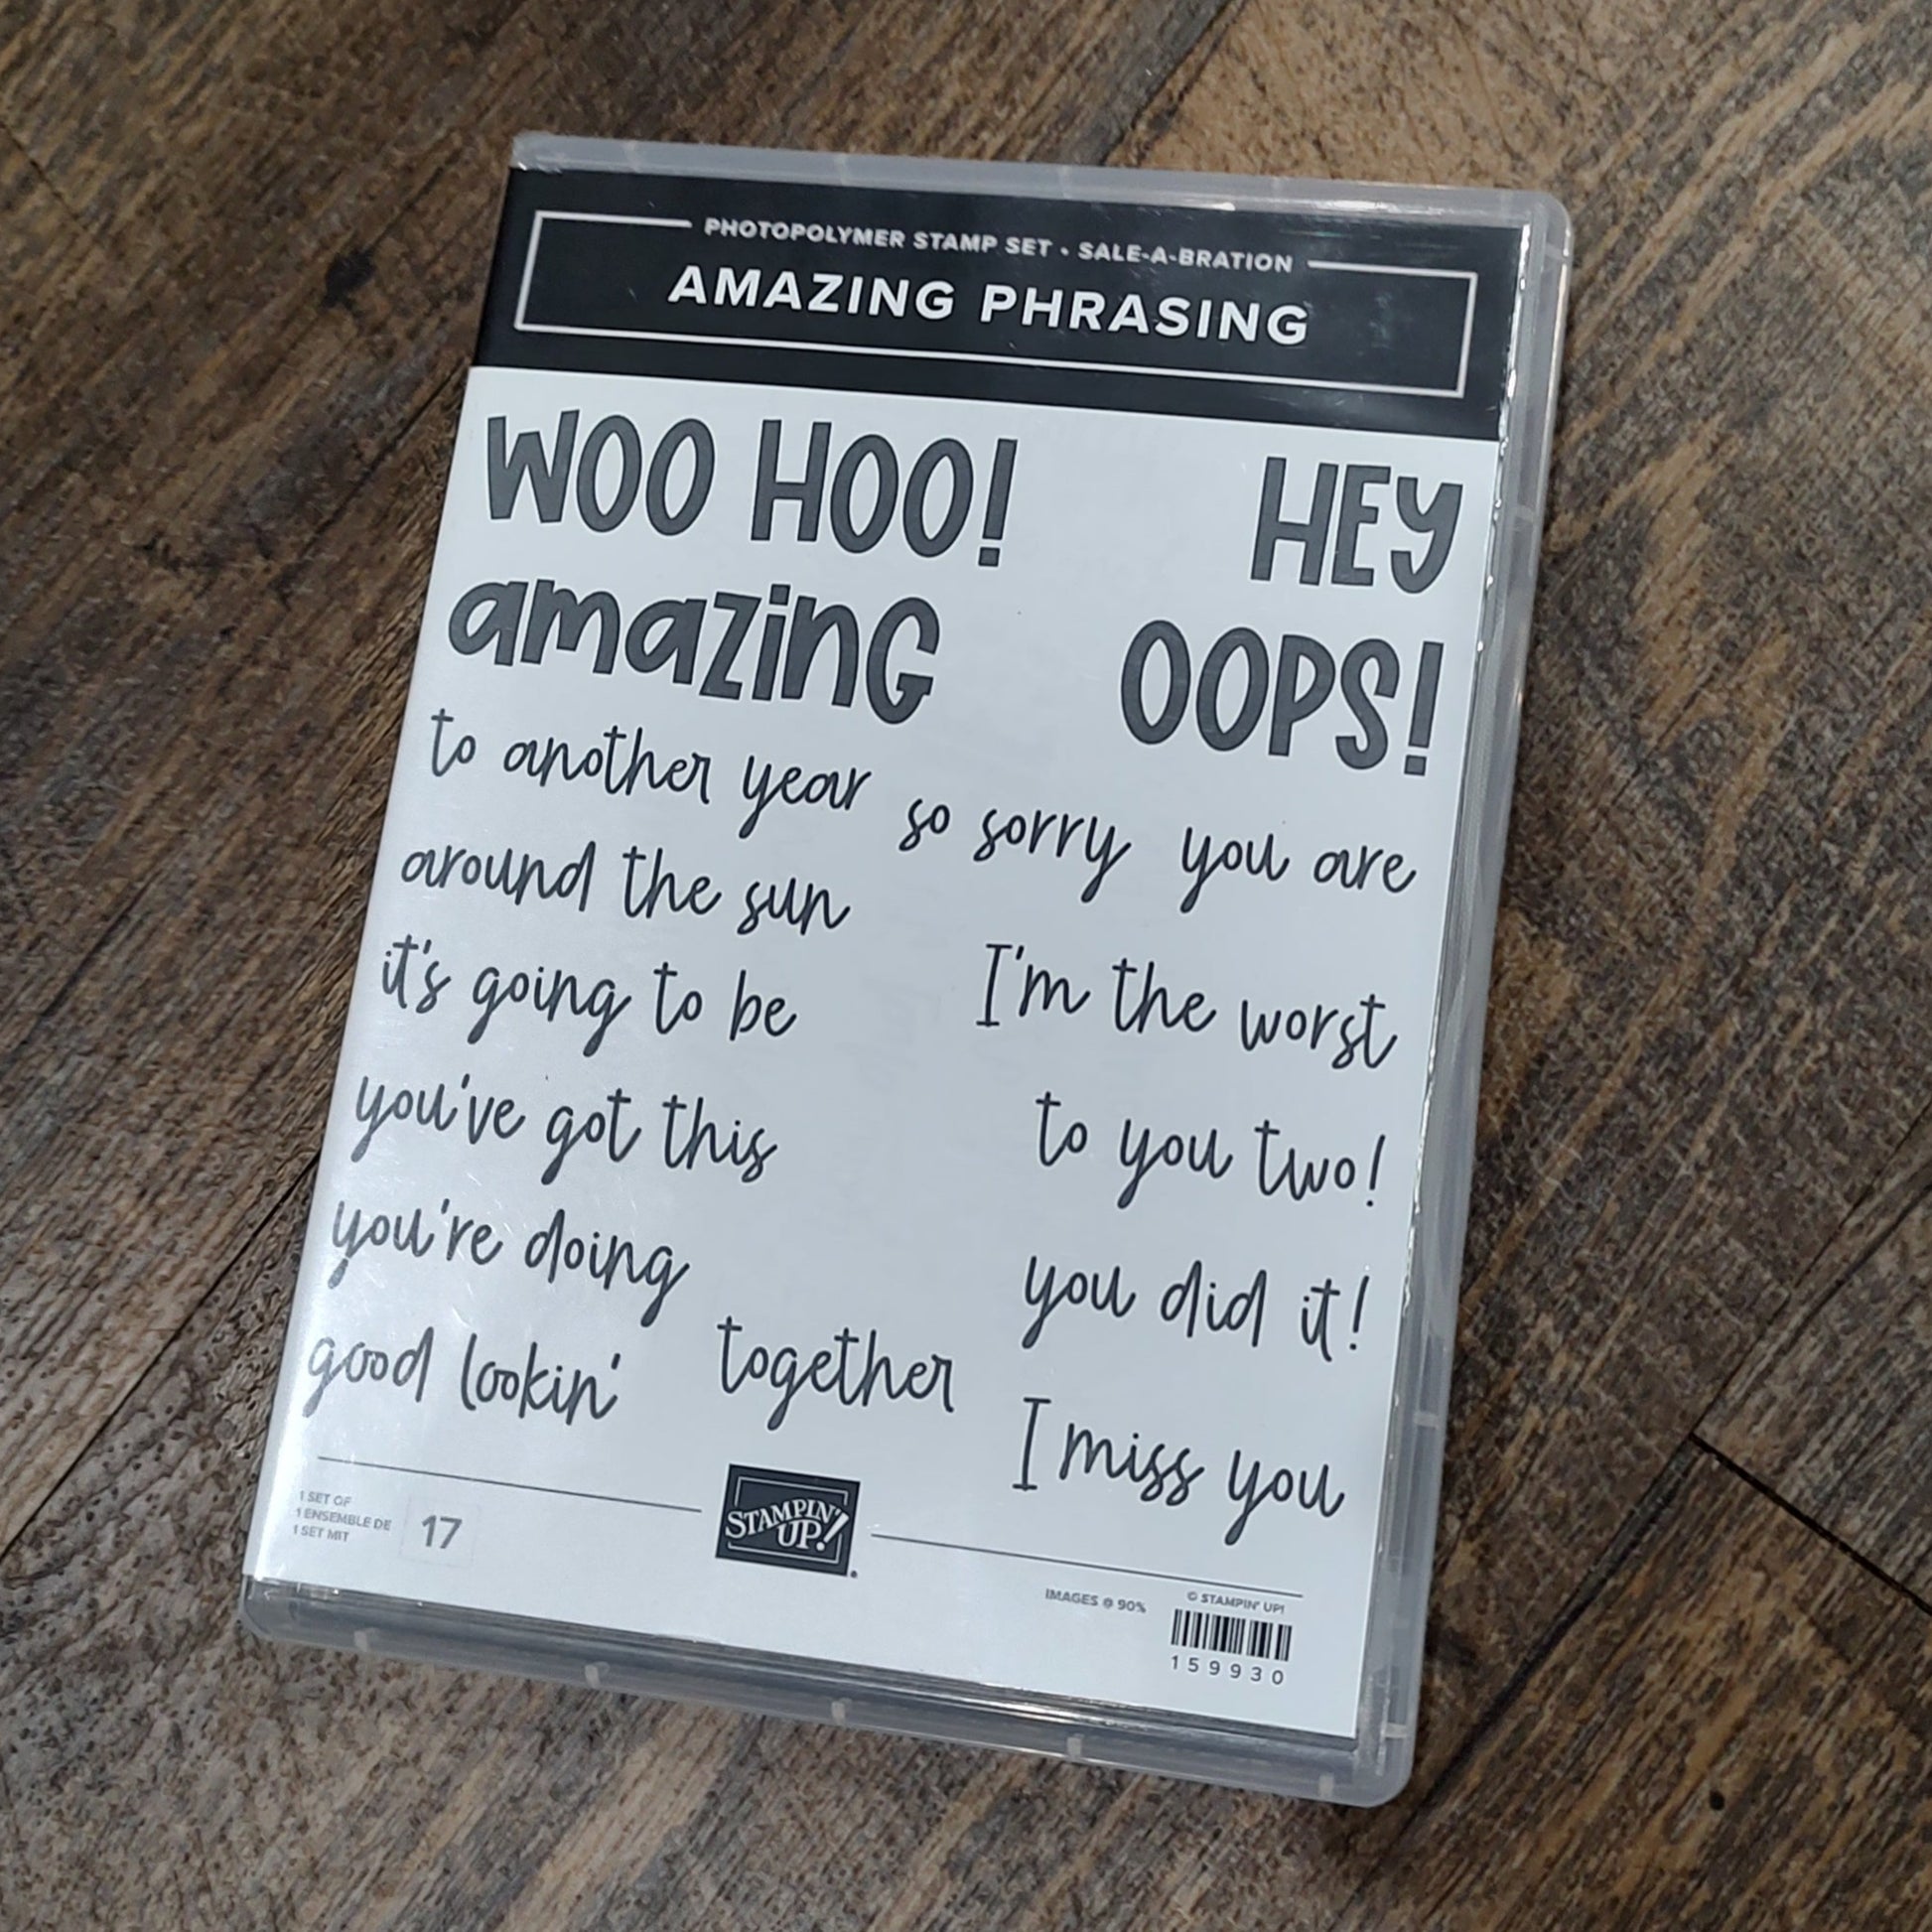 PHOTOPOLYMER STAMP SET • SALE-A-BRATION
AMAZING PHRASING
WOO HOO!
HEY
amazing
OOPS!
to another year
so sorry
you are
around the sun
it's going to be
I'm the worst
you've got this
to you two!
you're doing
you did it!
good lookin'
together
I miss you
1 SET OF
1 ENSEMBLE DE
1 SET MIT
17
STAMPIN'
UP!
IMAGES @ 90%
© STAMPIN' UP!
159930